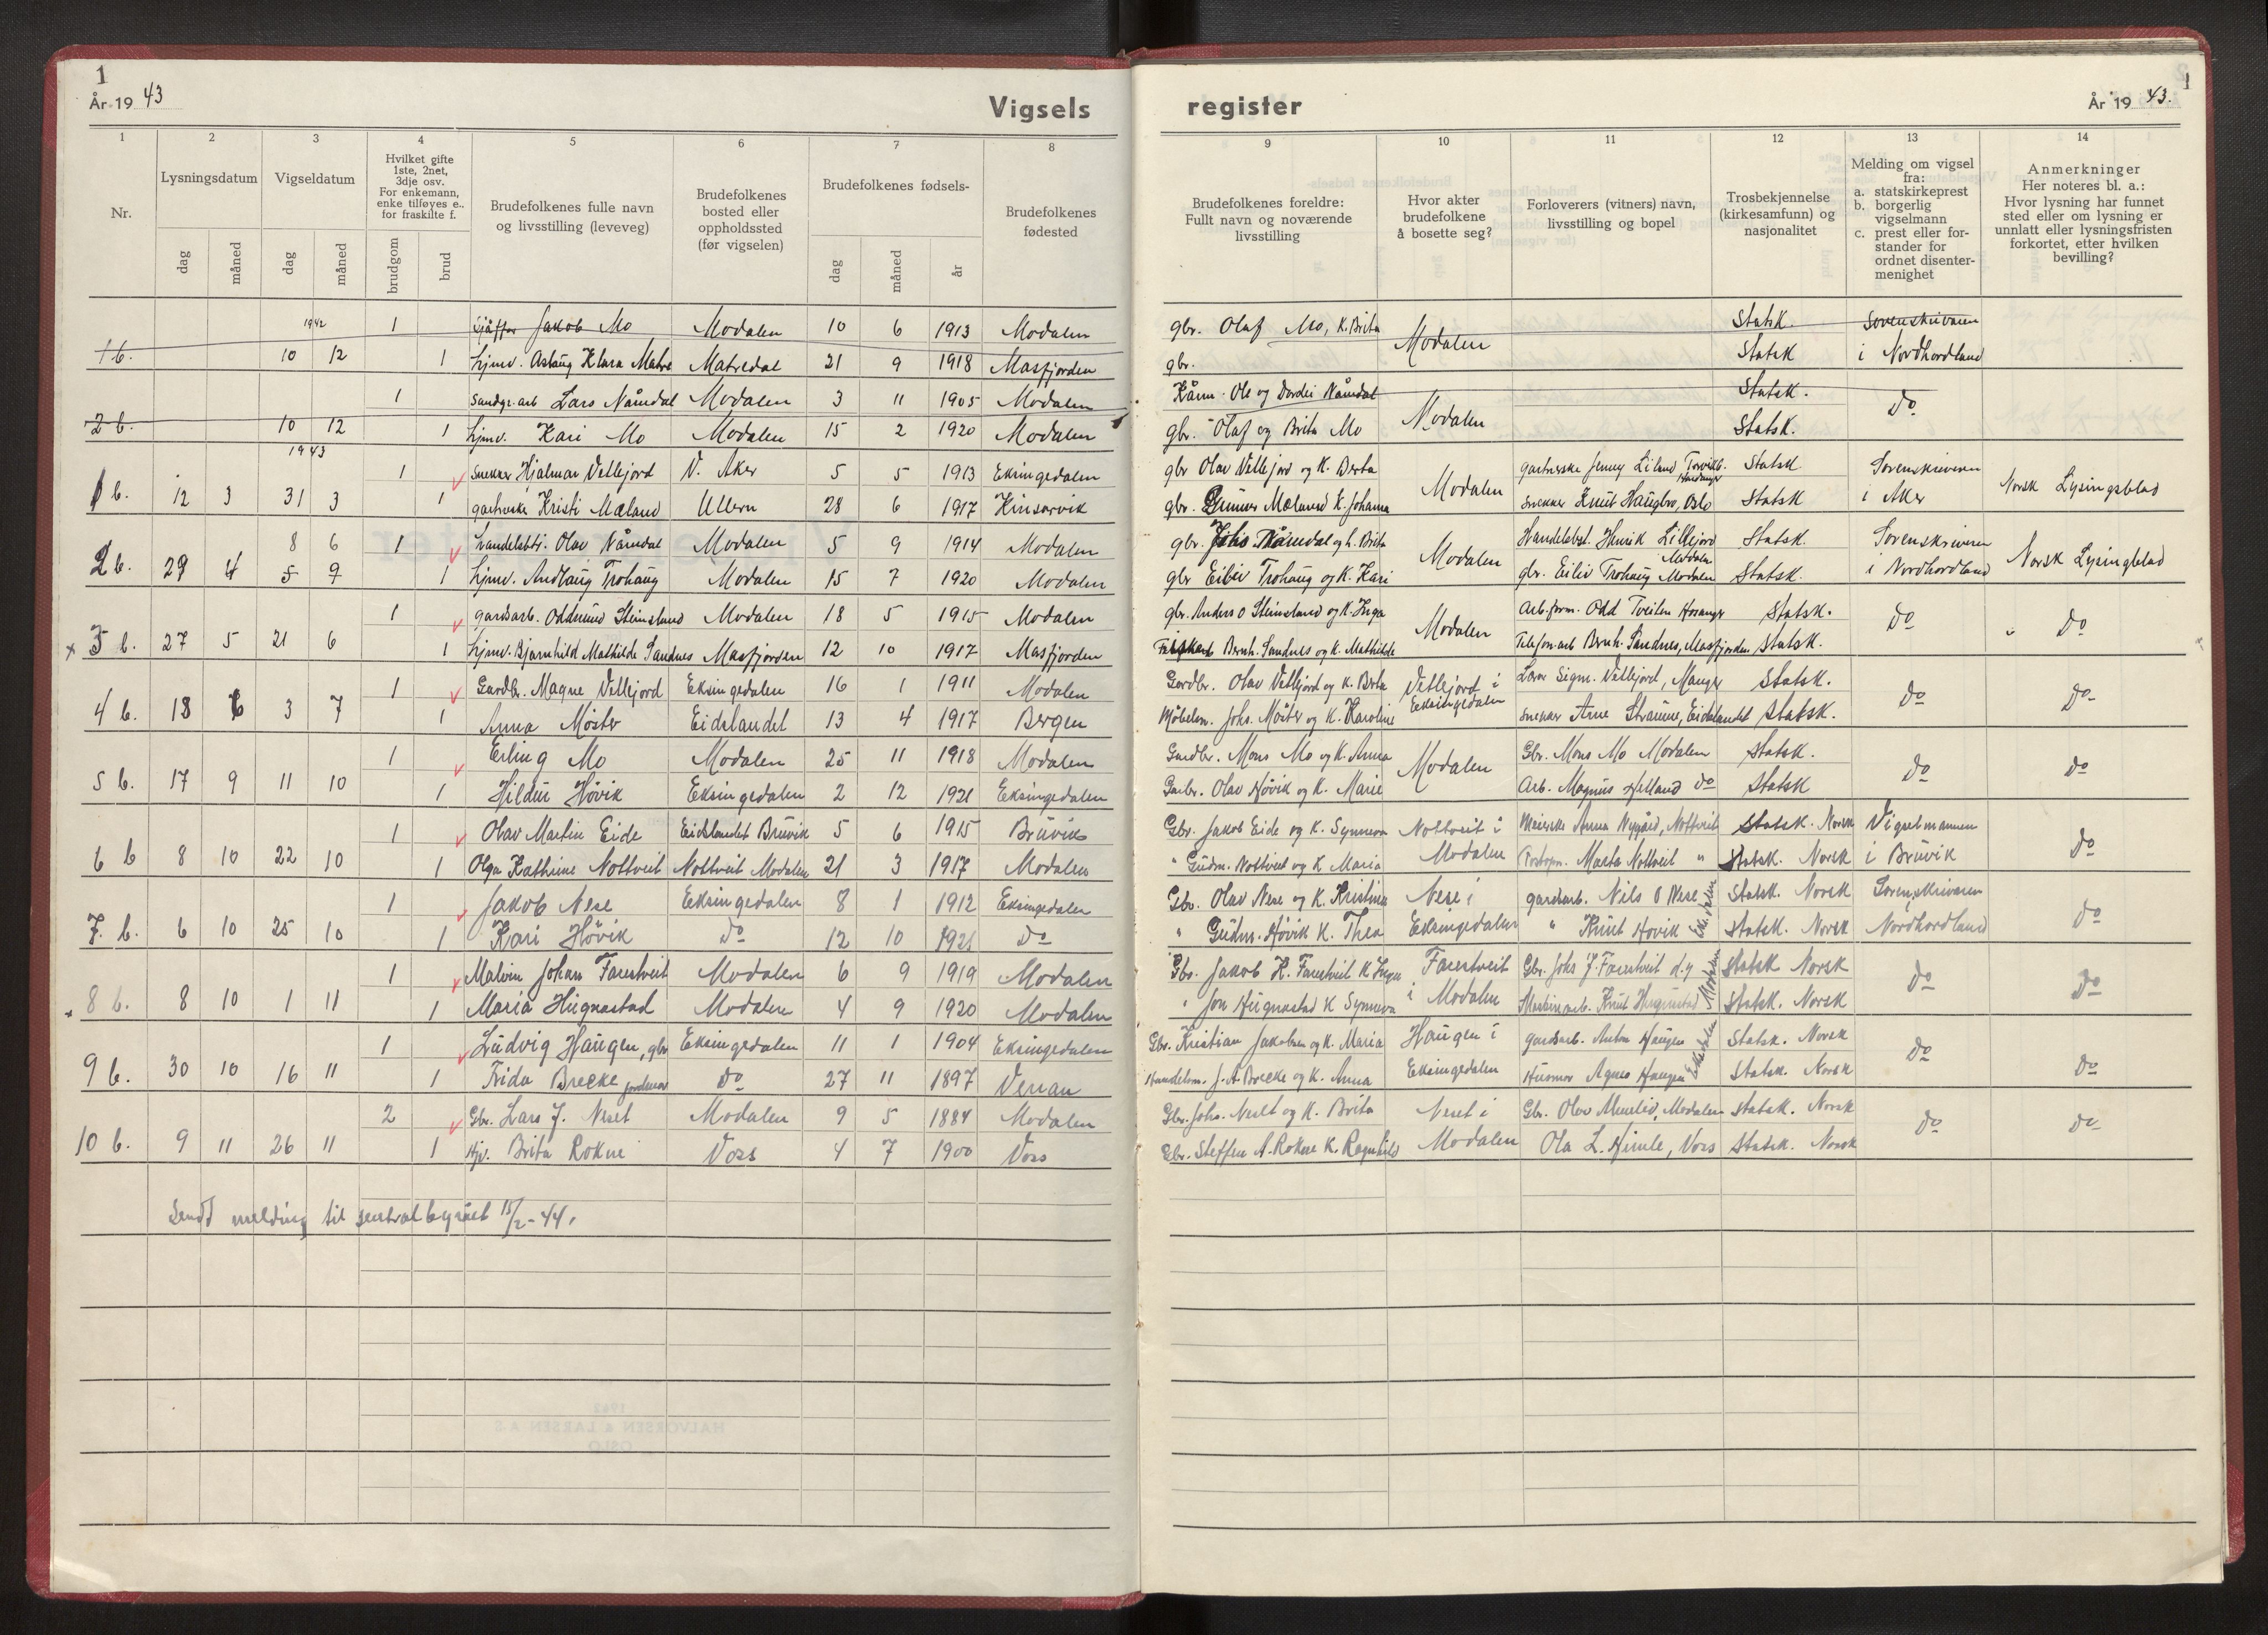 1
År 19 43
Vigsels
register
År 19 43.
1
1 2 3 4 5 6 7 8
9 10 11 12 13 14
Nr.
Lysningsdatum
Vigseldatum
Hvilket gifte
1ste, 2net,
3dje osv.
For enkemann,
enke tilføyes e.,
for fraskilte f.
Brudefolkenes fulle navn
og livsstilling (leveveg)
Brudefolkenes
bosted eller
oppholdssted
(før vigselen)
Brudefolkenes fødsels-
Brudefolkenes
fødested
dag måned dag måned brudgom brud dag måned år
Brudefolkenes foreldre:
Fullt navn og noværende
livsstilling
Hvor akter
brudefolkene
å bosette seg?
Forloverers (vitners) navn,
livsstilling og bopel
Trosbekjennelse
(kirkesamfunn) og
nasjonalitet
Melding om vigsel
fra:
a. statskirkeprest
b. borgerlig
vigselmann
c. prest eller for-
stander for
ordnet disenter-
menighet
Anmerkninger
Her noteres bl. a.:
Hvor lysning har funnet
sted eller om lysning er
unnlatt eller lysningsfristen
forkortet, etter hvilken
bevilling?
1942 1 Sjåffør Jakob Mo Modalen 10 6 1913 Modalen gbr. Olaf Mo, K. Brita Modalen Statsk. Sorenskrivaren
1 b. 10 12 1 hjmv. Aslaug Klara Matre Matredal 21 9 1918 Masfjorden gbr. Statsk i Nordhordland
1 Lars Nåmdal Modalen 3 11 1905 Modalen Kårm. Ole og Dordei Nåmdal Modalen Statsk. do
2 b. 10 12 1 hjmv. Kari Mo Modalen 15 2 1920 Modalen gbr. Olaf og Brita Mo Statsk.
1943
1 Snekker Hjalmar Vetlejord V. Aker 5 5 1913 Eksingedalen gbr Olav Vetlejord og K. Berta Modalen gartnerske Jenny Liland Statsk Sorenskriveren
1 b. 12 3 31 3 1 gartnerske Kristi Mæland Ullern 28 6 1917 Kinsarvik gbr. Gunnar Mæland K. Johanna snekker Knut Haugbro, Oslo Statsk i Aker Norsk Lysingsblad
8 6 1 handelsbtj. Olav Nåmdal Modalen 5 9 1914 Modalen gbr. Johs Nåmdal og h. Brita Modalen Handelsbet. Henrik Lillejord Modalen Statsk. Sorenskriveren
2 b. 29 4 5 9 1 hjmv. Audlaug Trohaug Modalen 15 7 1920 Modalen gbr Eiliv Trohaug og K. Kari gbr. Eiliv Trohaug Modalen Statsk. i Nordhordland Norsk Lysingsblad
1 gardsarb. Oddmund Steinsland Modalen 18 5 1915 Modalen gbr. Anders O Steinsland og K. Inga Modalen Arb.form. Odd Tveiten Hosanger Statsk. do do
x 3 b. 27 5 21 6 1 hjmv. Bjarnhild Mathilde Sandnes Masfjorden 12 10 1917 Masfjorden Bernh. Sandnes og k. Mathilde Telefon.arb Bernh. Sandnes, Masfjorden Statsk.
1 Gardbr. Magne Vetlejord Eksingedalen 16 1 1911 Modalen Gardbr. Olav Vetlejord og K. Brta Vetlejord i Eksingedalen Lærer Sigm. Vetlejord, Manger Statsk. do do
4 b. 18 6 3 7 1 Anna Möster Eidslandet 13 4 1917 Bergen Møbelsn. Johs. Möster og K. Karoline snekker Arne Straume, Eidslandet Statsk.
1 Erling Mo Modalen 25 11 1918 Modalen Gardbr. Mons Mo og K. Anna Modalen Gbr. Mons Mo Modalen Statsk. do do
5 b. 17 9 11 10 1 Hildur Hövik Eksingedalen 2 12 1921 Eksingedalen Garbr. Olav Hövik og K. Marie Arb. Magnus Helland do Statsk
1 Olav Martin Eide Eidslandet Bruvik 5 6 1915 Bruvik Gbr. Jakob Eide og K. Synneva Nottveit i Meierske Anna Nygård, Nottveit Statsk. Norsk Vigselmannen do
6 b 8 10 22 10 1 Olga Kathrine Nottveit Nottveit Modalen 21 3 1917 Modalen " Gudm. Nottveit og K Maria Modalen Postopn. Marta Nottveit " Statsk. Norsk i Bruvik
1 Jakob Nese Eksingedalen 8 1 1912 Eksingedalen Gbr. Olav Nese og K. Kristina Nese i gardarb. Nils O Nese Statsk. Norsk Sorenskrivaren do
7. b. 6 10 25 10 1 Kari Hövik do 12 10 1921 do " Gudm. Hövik K. Thea Eksingedalen " Knut Hovik Statsk. Norsk Nordhordland
1 Malvin Johan Farestveit Modalen 6 9 1919 Modalen Gbr. Jakob K. Farestveit K Inga Farestveit Gbr. Johs J. Farestveit d.y Modalen Statsk Norsk do do
8 b. 8 10 1 11 1 Maria Hugnastad Modalen 4 9 1920 Modalen " Jon Hugnastad K Synneva i Modalen Knut Hugnastad Statsk. Norsk
1 Ludvig Haugen, gbr Eksingedalen 11 1 1904 Eksingedalen Gbr. Kristian Jakobsen og K. Maria Haugen i gardsarb. Anton Haugen Statsk. Norsk do do
9 b. 30 10 16 11 1 Frida Brekke jordmor do 27 11 1897 Verran Handelsm. J. A. Brekke og K. Anna Eksingedalen Husmor Agnes Haugen Statsk. Norsk
2 Gbr. Lars J. Neset Modalen 9 5 1884 Modalen Gbr. Johs. Neset og K. Brita Neset i Gbr. Olav Modalen Statsk. Norsk do do
10 b. 9 11 26 11 1 Hjv. Brita Rokne Voss 4 7 1900 Voss Gbr. Steffen A. Rokne K. Ragnhild Modalen Ola L. Himle, Voss Statsk. Norsk
Sendt melding til sentralbyrået 15/2-44.